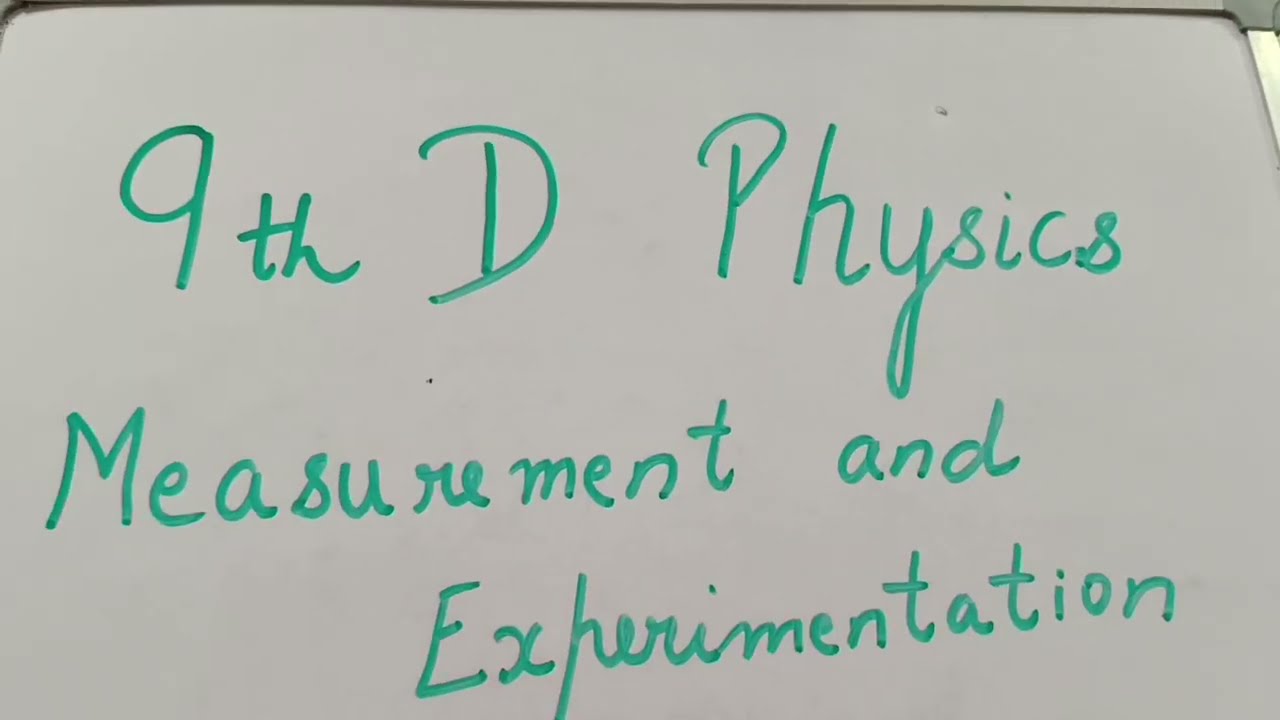 9th D Physics
Measurement and
Experimentation